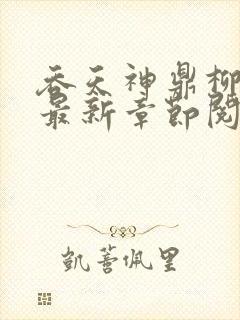 吞天神鼎柳
最新章节阅
凯蒂佩里